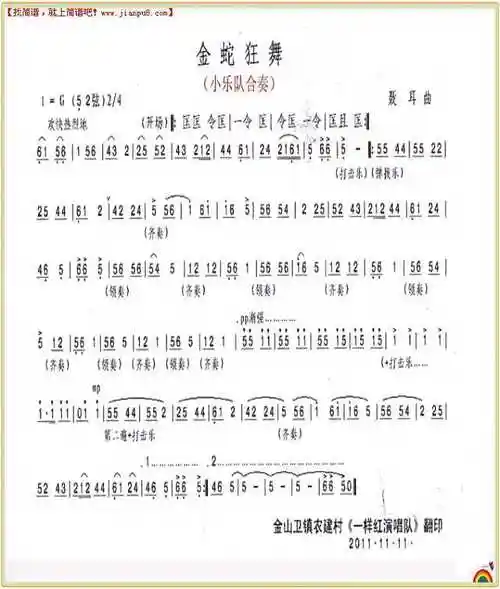 【找简谱，就上简谱吧！www.jianpu8.com】
金蛇狂舞
(小乐队合奏)
1 = G (5 2弦) 2/4
聂 耳 曲
欢快热烈地 (开场) 匡匡 令匡|一令 匡|令匡 一令|匡且 匡:
61 56|1 56|43 2|25 52|43 212|44 61|24 2161|5 66|5 -|:55 44|55 22|
(打击乐)(弹拨乐)
25 44|61 2|42 24|5 56|1 61|16 5|56 54|25 52|43 212|44 61|24
(齐奏)
46 5|66 5|56 56|54 5|12 12|56 56|16 5|12 12|56 1|56 54|
(领奏) (齐奏) (领奏) (齐奏) (领奏)
5 12|56 1|56 5|12|56 1|55 11|55 11|15 15|15 15|1 1|1 1|
.pp渐强............
(齐奏) (领奏) (齐奏) (领奏) (齐奏) (+打击乐......
mp
1·1 11|01 1|55 44|55 2|25 44|61 2|42 24|5 56|1 61|16 5|56 54|2 25|
第二遍+打击乐 (齐奏)
.1............... .2...............
52 43|212 44|61 24|46 5|66 5:|46 5|5 -|5 -|5 -|66 50|
金山卫镇农建村《一样红演唱队》翻印
2011·11·11·